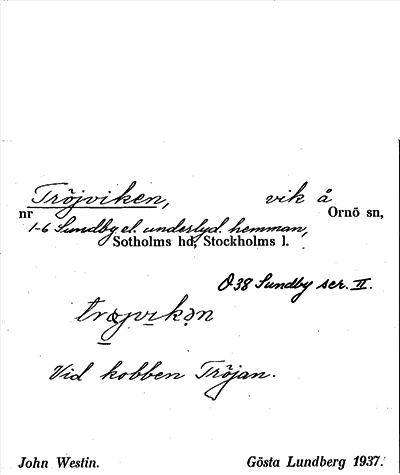 Tröjviken, vik å
nr Ornö sn,
1-6 Sundby el. underlyd. hemman,
Sotholms hd, Stockholms l.
O38 Sundby ser. II.
Vid kobben Tröjan.
John Westin. Gösta Lundberg 1937.